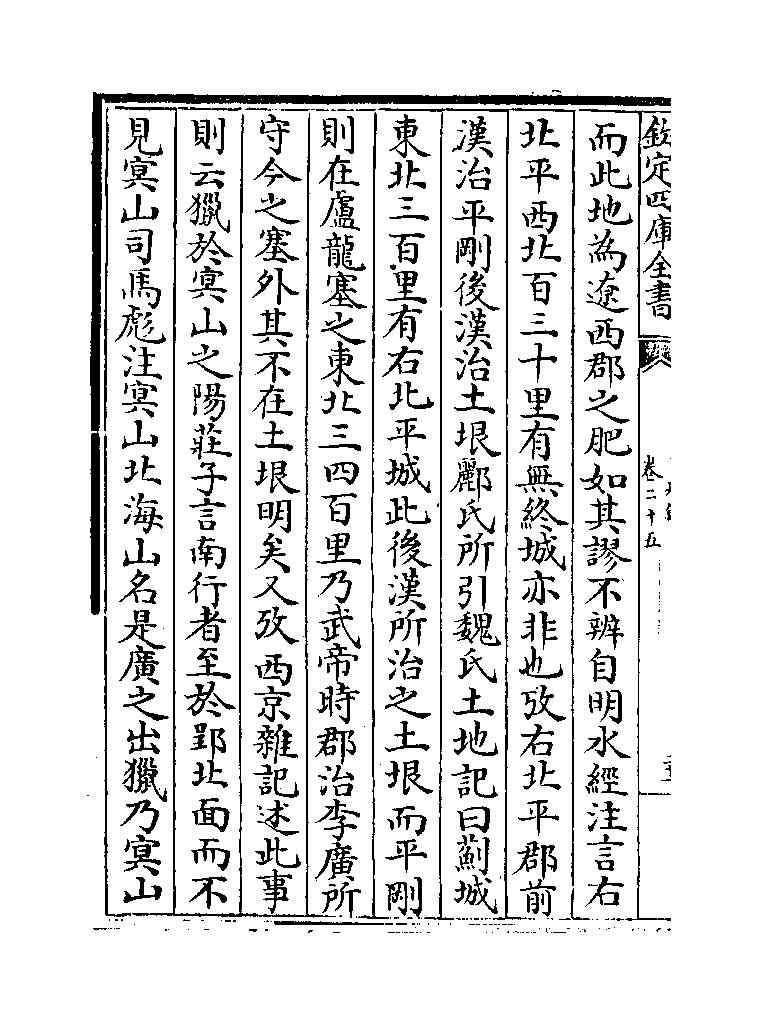 欽定四庫全書
卷二十五
而此地為遼西郡之肥如其謬不辨自明水經注言右
北平西北百三十里有無終城亦非也攷右北平郡前
漢治平剛後漢治土垠酈氏所引魏氏土地記曰薊城
東北三百里有右北平城此後漢所治之土垠而平剛
則在盧龍塞之東北三四百里乃武帝時郡治李廣所
守今之塞外其不在土垠明矣又攷西京雜記述此事
則云獵於冥山之陽莊子言南行者至於郢北面而不
見冥山司馬彪注冥山北海山名是廣之出獵乃冥山